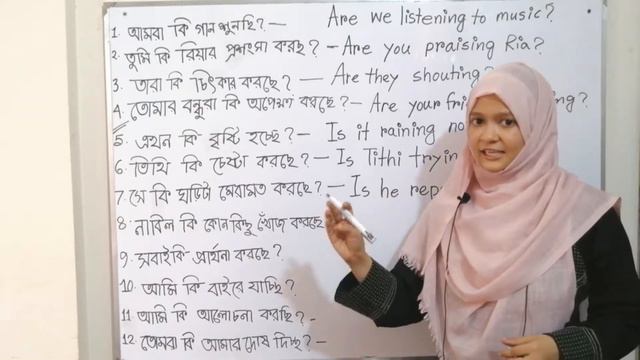 1. আমরা কি গান শুনছি? — Are we listening to music?
2. তুমি কি রিয়ার প্রশংসা করছ? – Are you praising Ria?
3. তারা কি চিৎকার করছে? — Are they shouting?
4. তোমার বন্ধুরা কি অপেক্ষা করছে? – Are your
5. এখন কি বৃষ্টি হচ্ছে? – Is it raining
6. তিথি কি চেষ্টা করছে? – Is Tithi
7. সে কি ঘড়িটা মেরামত করছে? – Is he
8. নাবিল কি কোনকিছু খোঁজ করছে
9. সবাই কি প্রার্থনা করছে?
10. আমি কি বাইরে যাচ্ছি?
11. আমি কি আলোচনা করছি? –
12. তোমরা কি আমার দোষ দিচ্ছ? –